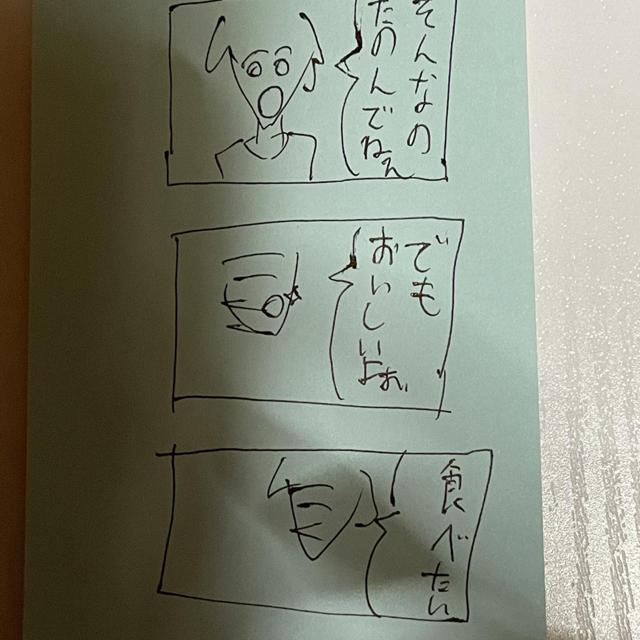 そんなの
たのんでねぇ
でも
おいしいよぉ
食べたい